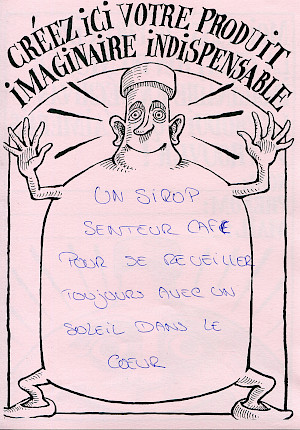 CRÉEZ ICI VOTRE PRODUIT
IMAGINAIRE INDISPENSABLE
UN SIROP
SENTEUR CAFE
POUR SE REVEILLER
TOUJOURS AVEC UN
SOLEIL DANS LE
COEUR